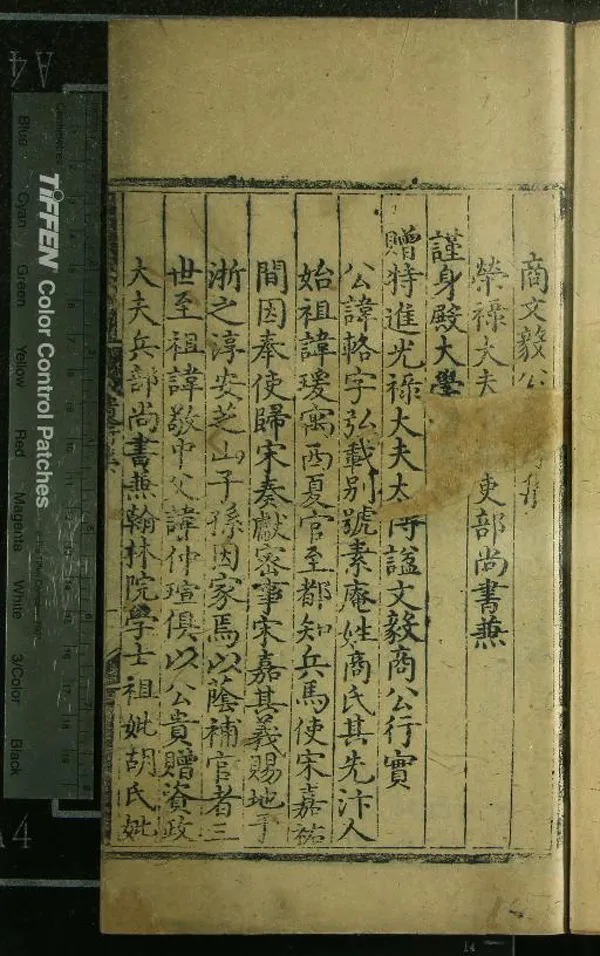 商文毅公
榮禄大夫 吏部尚書兼
謹身殿大學
贈特進光禄大夫太傅謚文毅商公行實
公諱輅字弘載别號素庵姓商氏其先汴人
始祖諱瑗寓西夏官至都知兵馬使宋嘉祐
間因奉使歸宋奏獻密事宋嘉其義賜地于
浙之淳安芝山子孫因家焉以蔭補官者三
世至祖諱敬中父諱仲瑄俱以公貴贈資政
大夫兵部尚書兼翰林院學士祖妣胡氏妣
TIFFEN Color Control Patches
Blue
Cyan
Green
Yellow
Red
Magenta
White
3/Color
Black
A4